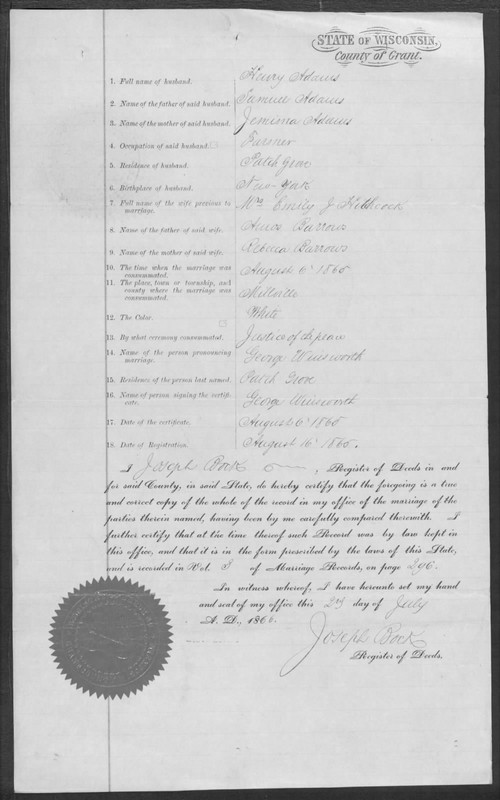 STATE OF WISCONSIN,
County of Grant.
1. Full name of husband. Henry Adams
2. Name of the father of said husband. Samuel Adams
3. Name of the mother of said husband. Jemima Adams
4. Occupation of said husband. Farmer
5. Residence of husband. Patch Grove
6. Birthplace of husband. New-York
7. Full name of the wife previous to Mrs Emily J
marriage.
8. Name of the father of said wife. Barrows
9. Name of the mother of said wife. Rebeca Barrows
10. The time when the marriage was August 6" 1865
consummated.
11. The place, town or township, and Millville
county where the marriage was
consummated.
12. The Color. White
13. By what ceremony consummated. Justice of de peace
14. Name of the person pronouncing George
marriage.
15. Residence of the person last named. Patch Grove
16. Name of person signing the certifi- George
cate.
17. Date of the certificate. August 6" 1865
18. Date of Registration. August 16" 1865.
I Joseph Bock, Register of Deeds in and
for said County, in said State, do hereby certify that the foregoing is a true
and correct copy of the whole of the record in my office of the marriage of the
parties therein named, having been by me carefully compared therewith. I
further certify that at the time thereof such Record was by law kept in
this office, and that it is in the form prescribed by the laws of this State,
and is recorded in Vol. 3 of Marriage Records, on page 296.
In witness whereof, I have hereunto set my hand
and seal of my office this day of July
A. D., 186
Joseph Bock
Register of Deeds.